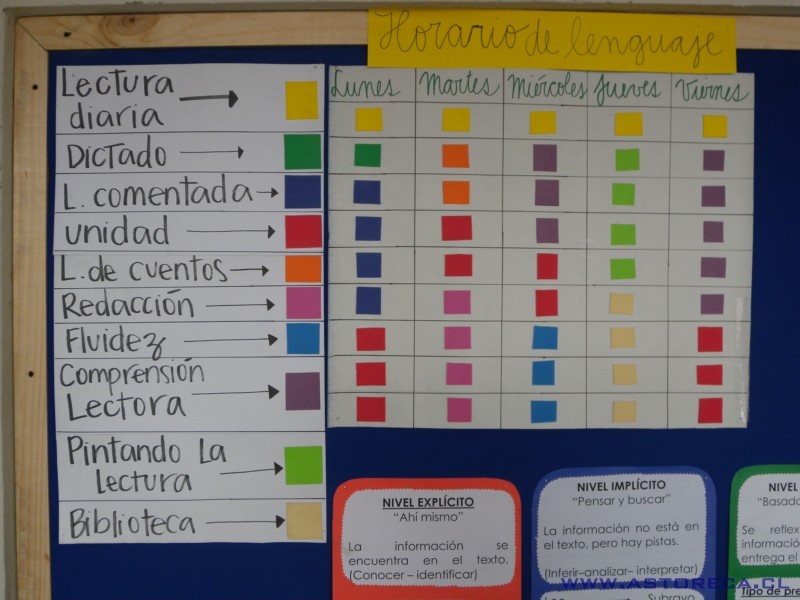 Horario de lenguaje
Lectura
diaria
Lunes Martes Miércoles Jueves Viernes
Dictado
L. comentada
unidad
L. de cuentos
Redacción
Fluidez
Comprensión
Lectora
Pintando La
Lectura
Biblioteca
NIVEL EXPLÍCITO
"Ahí mismo"
La información se
encuentra en el texto.
(Conocer – identificar)
NIVEL IMPLÍCITO
"Pensar y buscar"
La información no está en
el texto, pero hay pistas.
(Inferir–analizar– interpretar)
Subrayo
NIVEL
"Basado
Se reflex
información
entrega el
Tipo de pre
WWW.ASTORECA.CL